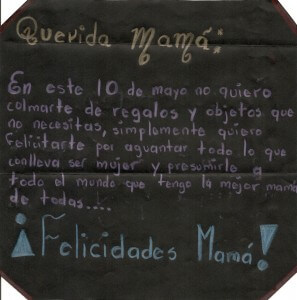 Querida Mamá:
En este 10 de mayo no quiero
colmarte de regalos y objetos que
no necesitas, simplemente quiero
felicitarte por aguantar todo lo que
conlleva ser mujer y presumirle a
todo el mundo que tengo la mejor mamá
de todas....
¡Felicidades Mamá!